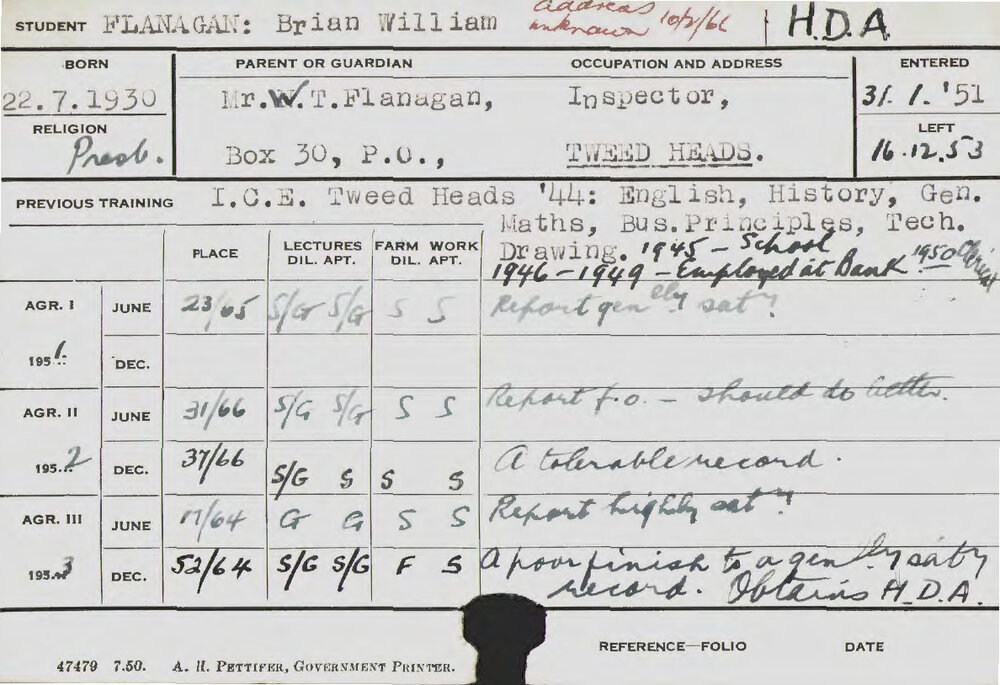 STUDENT FLANAGAN: Brian William address unknown 10/2/66 H.D.A.
BORN PARENT OR GUARDIAN OCCUPATION AND ADDRESS ENTERED
22.7.1930 Mr.W.T.Flanagan, Inspector, 31.1.'51
RELIGION LEFT
Presb. Box 30, P.O., TWEED HEADS. 16.12.53
PREVIOUS TRAINING I.C.E. Tweed Heads '44: English, History, Gen.
Maths, Bus.Principles, Tech.
Drawing. 1945 - School
1946-1949 - Employed at Bank 1950
PLACE LECTURES FARM WORK
DIL. APT. DIL. APT.
AGR. I JUNE 23/65 S/G S/G S S Report genelly saty
1951 DEC.
AGR. II JUNE 31/66 S/G S/G S S Report f.o. - should do better.
1952 DEC. 37/66 S/G S S S A tolerable record.
AGR. III JUNE 17/64 G G S S Report highly saty
1953 DEC. 52/64 S/G S/G F S A poor finish to a genlly saty
record. Obtains H.D.A.
REFERENCE—FOLIO DATE
47479 7.50. A. H. PETTIFER, GOVERNMENT PRINTER.